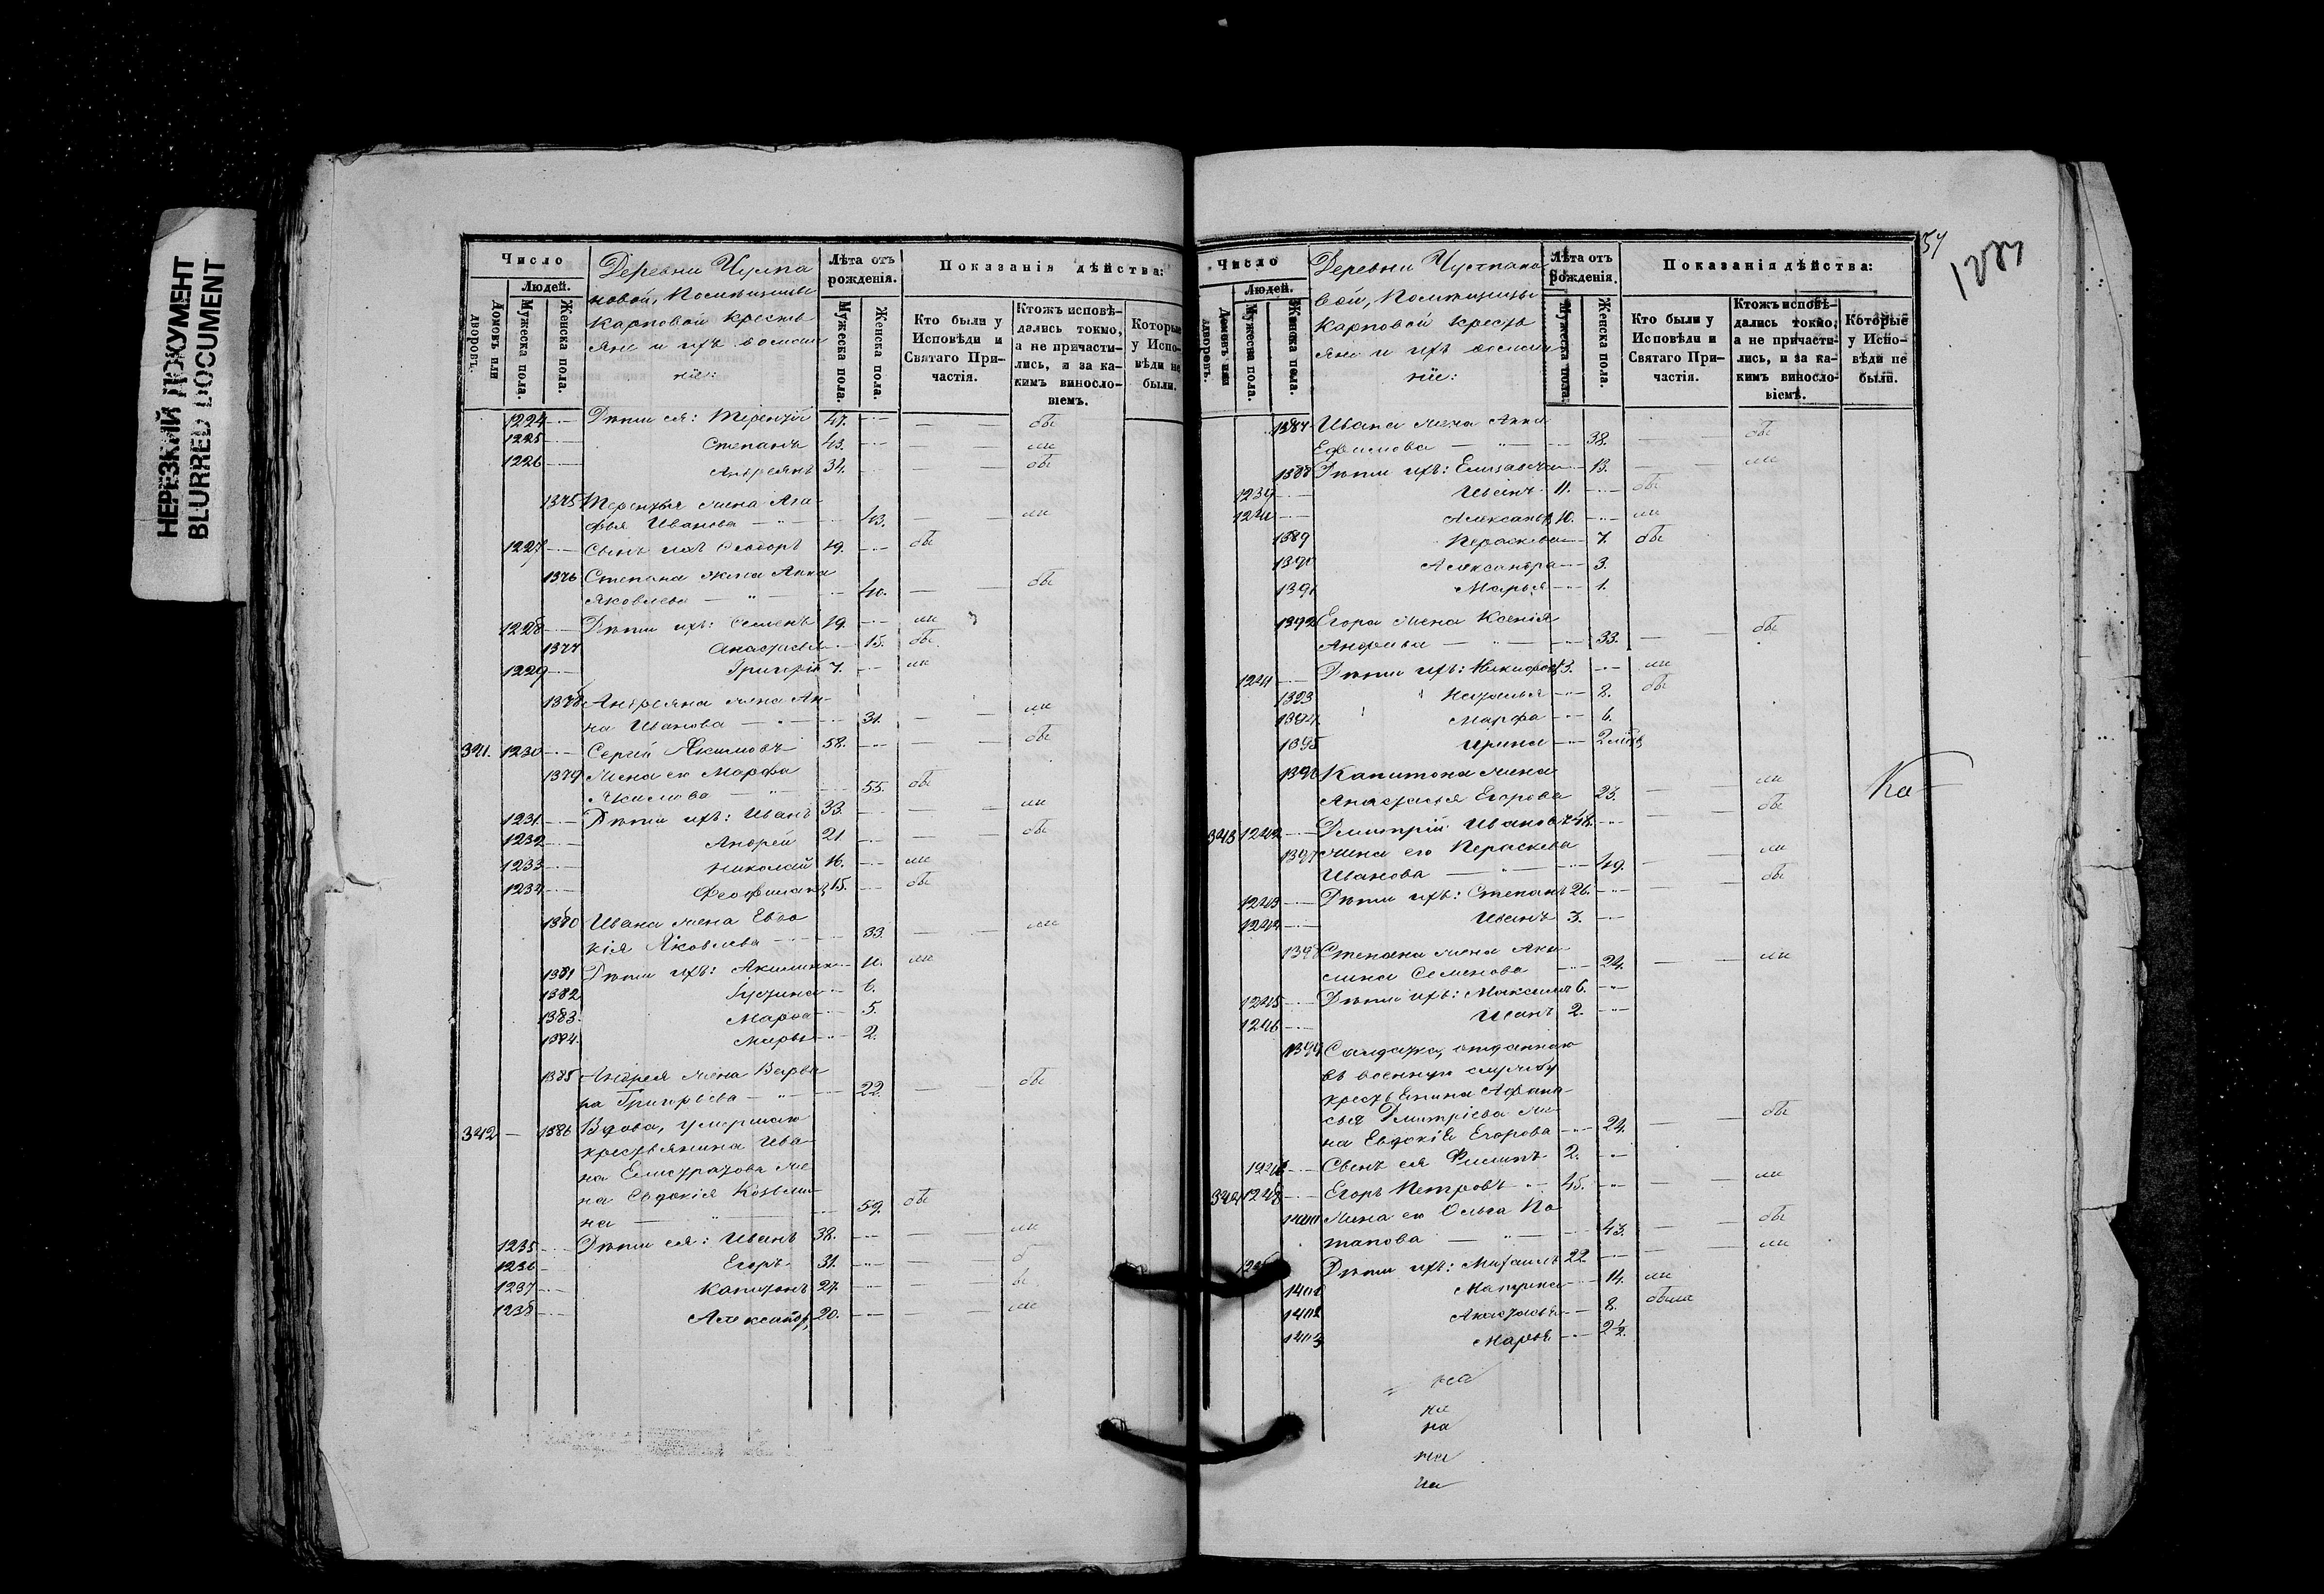 НЕРЕЗКИЙ ДОКУМЕНТ
BLURRED DOCUMENT
Число
Людей.
Домовъ или дворовъ.
Мужеска пола.
Женска пола.
Деревни Чулпа
новой, Помѣщицы
Карповой кресть
яне и ихъ домаш
ніе:
Лѣта отъ рожденія.
Мужеска пола.
Женска пола.
Показанія дѣйства:
Кто были у Исповѣди и Святаго Причастія.
Ктожъ исповѣдались токмо, а не причастились, и за какимъ винословіемъ.
Которые у Исповѣди не были.
1224 Дѣти ея: Терентій 47. бы
1225 Степанъ 43. ли
1226 Андреянъ 34. бы
1375 Терентья жена Ага
фья Иванова 43. ли
1227 Сынъ ихъ Ѳеодоръ 19. бы
1376 Степана жена Анна
Яковлева 40. бы
1228 Дѣти ихъ: Семенъ 19. ли
1377 Анастасья 15. бы
1229 Григорій 7. ли
1378 Андреяна жена Ан
на Иванова 31. ли
341. 1230 Сергѣй Акимовъ 58. бы
1379 Жена ею Марфа
Акимова 55. бы
1231 Дѣти ихъ: Иванъ 33. ли
1232 Андрей 21. бы
1233 Николай 16. ли
1234 Феофилактъ 15. бы
1380 Ивана жена Евдо
кія Яковлева 33. ли
1381 Дѣти ихъ: Акилина 11. ли
1382 Іустина 6.
1383 Марфа 5.
1384 Марья 2.
1385 Андрея жена Варва
ра Григорьева 22. бы
342 1386 Вдова, умершаго
крестьянина Ива
на Елистратова же
на Евдокія Козьми
на 59. бы
1235 Дѣти ея: Иванъ 38. ли
1236 Егоръ 31. б
1237 Капитонъ 27. ы
1238 Александръ 20. ли
54
1287
Число
Людей.
Домовъ или дворовъ.
Мужеска пола.
Женска пола.
Деревни Чулпано
вой, Помѣщицы
Карповой кресть
яне и ихъ домаш
ніе:
Лѣта отъ рожденія.
Мужеска пола.
Женска пола.
Показанія дѣйства:
Кто были у Исповѣди и Святаго Причастія.
Ктожъ исповѣдались токмо, а не причастились, и за какимъ винословіемъ.
Которые у Исповѣди не были.
1387 Ивана жена Анна
Ефимова 38. бы
1388 Дѣти ихъ: Елизавета 13. ли
1239 Иванъ 11. бы
1240 Александръ 10. ли
1389 Пераскева 7. бы
1390 Александра 3.
1391 Марья 1.
1392 Егора жена Ксенія
Андреева 33. бы
1241 Дѣти ихъ: Никифоръ 13. ли
1393 Наталья 8. бы
1394 Марфа 6.
1395 Ирина
1396 Капитона жена
Анастасья Егорова 23. ли
Ка
343 1242 Дмитрій Ивановъ 48. бы
1397 Жена его Пераскева
Иванова 49. ли
1243 Дѣти ихъ: Степанъ 26. бы
1244 Иванъ 3.
1398 Степана жена Аки
лина Семенова 24. ли
1245 Дѣти ихъ: Максимъ 6.
1246 Иванъ 2.
1399 Солдатка, отданнаго
въ военную службу
крестьянина Афана
сья Дмитріева же
на Евдокія Егорова 24. бы
Сынъ ея Филипъ 2.
344 1248 Егоръ Петровъ 45. ли
1400 Жена ею Ольга По
тапова 43. бы
Дѣти ихъ: Михаилъ 22. ли
1401 Матрена 14. ли
1402 Анастасья 8. была
1403 Марья 2½.
на
на
на
на
на